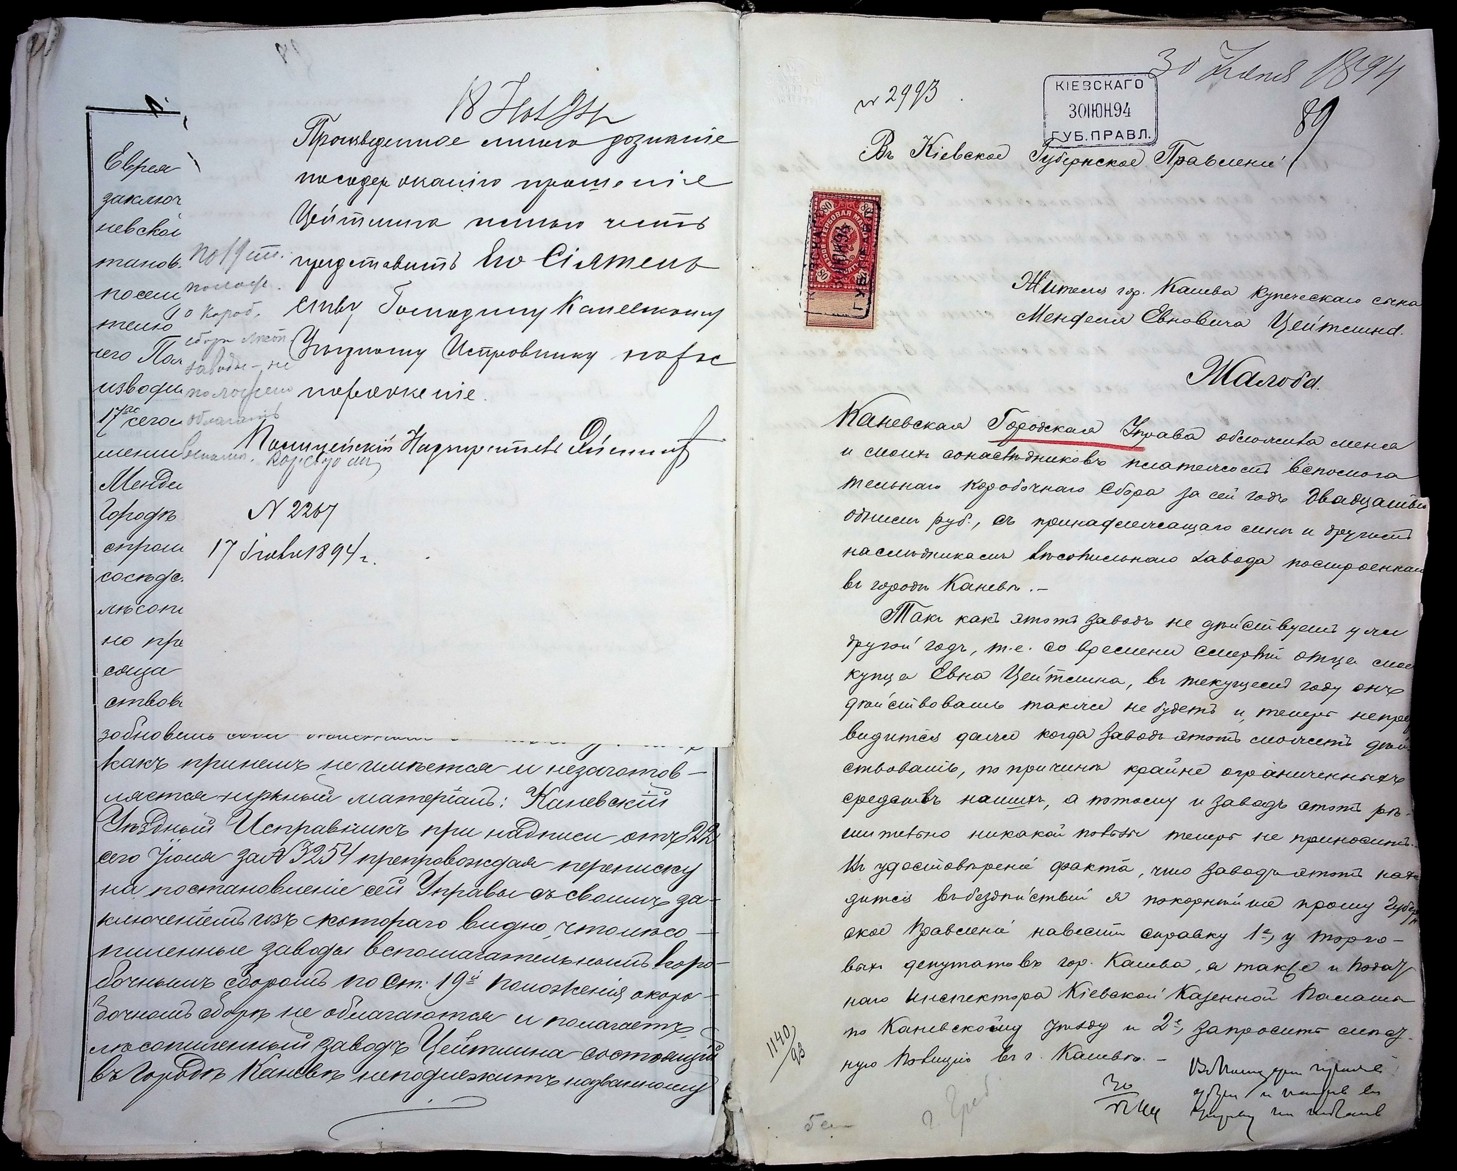 18 Ноя 94
Произведенное мною дознание
по содержанию прошения
Цейтлина имею честь
представить Его Сіятель
ству Господину Каневскому
Уѣздному Исправнику
Полицейскій Надзиратель
N 2267
17 1894 г.
по 19 ст.
о короб.
сборѣ
заводы не
Еврея
заключ
невской
танов.
посел
телю
его Пал
изводи
17го сего
мени
Менде
Городѣ
строи
сосѣдс
лѣсопи
но при
соща
ствова
какъ причемъ не имѣется и незаготов-
ляется нужный матеріалъ: Каневскій
Уѣздный Исправникъ при надписи отъ 22
сего Іюля за № 3251 препровождая переписку
на постановленіе сей Управы съ своимъ за-
ключеніемъ изъ котораго видно, что лѣсо-
пиленные заводы вспомагательнымъ коро-
бочнымъ сборомъ по ст. 19й положенія о коро-
бочномъ сборѣ не облагаются и полагаетъ
лѣсопиленный заводъ Цейтлина состоящій
въ Городѣ Каневѣ неподлежитъ названному
30 Іюня 1894
КІЕВСКАГО
30 ІЮН. 94
ГУБ. ПРАВЛ.
№ 2993
89
Въ Кіевское Губернское Правленіе
Жителя гор. Канева купеческаго сына
Менделя Евновича Цейтлина.
Жалоба.
Каневская Городская Управа обложила меня
и моихъ сонаслѣдниковъ платежемъ вспомога
тельнаго коробочнаго сбора за сей годъ двадцатью
однимъ руб., съ принадлежащаго мнѣ и другимъ
наслѣдникамъ лѣсопильнаго завода построеннаго
въ городѣ Каневѣ. —
Такъ какъ этотъ заводъ не дѣйствуетъ уже
другой годъ, т. е. со времени смерти отца моего
купца Евна Цейтлина, въ текущемъ году онъ
дѣйствовать также не будетъ и, теперь непред
видится даже когда заводъ этотъ можетъ дѣй
ствовать, по причинѣ крайне ограниченныхъ
средствъ нашихъ, а потому и заводъ этотъ рѣ-
шительно никакой пользы теперь не приноситъ.
Въ удостовѣреніе факта, что заводъ этотъ нахо
дится въ бездѣйствіи я покорнѣйше прошу Губерн
ское Правленіе навести справку 1е, у торго-
выхъ депутатовъ гор. Канева, а также и Подат
наго Инспектора Кіевской Казенной Палаты
по Каневскому уѣзду и 2е, запросить мѣст
ную полицію въ г. Каневѣ. —
1140/93